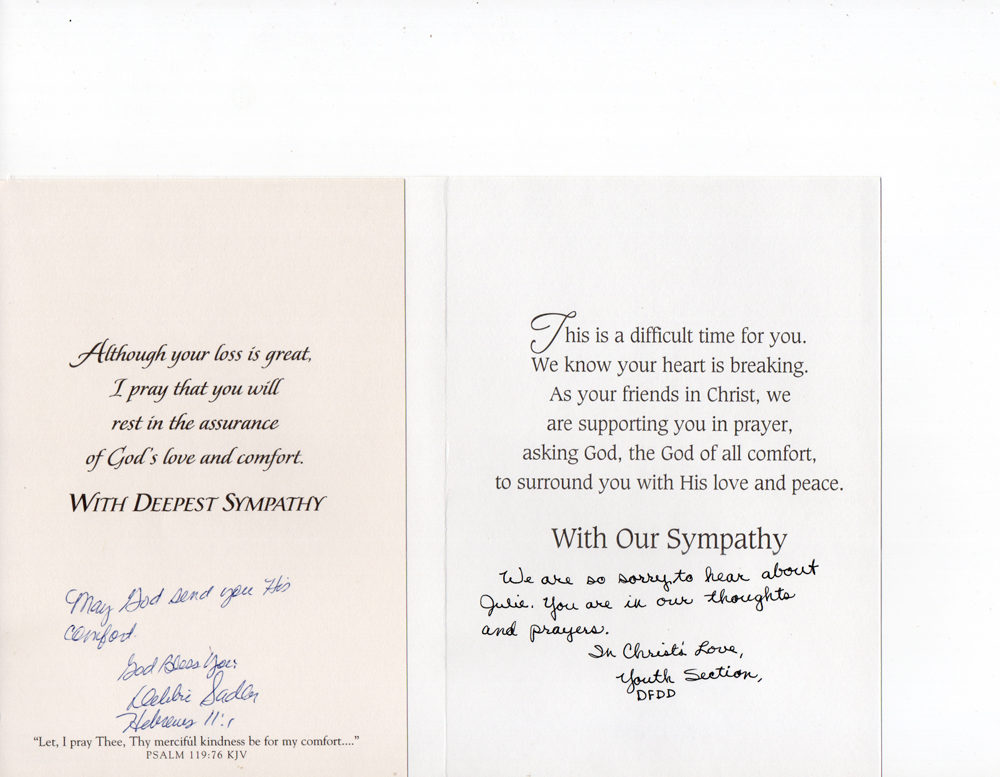 Although your loss is great,
I pray that you will
rest in the assurance
of God's love and comfort.
WITH DEEPEST SYMPATHY
May God send you His
comfort.
God Bless You,
Debbie
Hebrews 11:1
"Let, I pray Thee, Thy merciful kindness be for my comfort...."
PSALM 119:76 KJV
This is a difficult time for you.
We know your heart is breaking.
As your friends in Christ, we
are supporting you in prayer,
asking God, the God of all comfort,
to surround you with His love and peace.
With Our Sympathy
We are so sorry to hear about
Julie. You are in our thoughts
and prayers.
In Christ's Love,
Youth Section,
DFDD